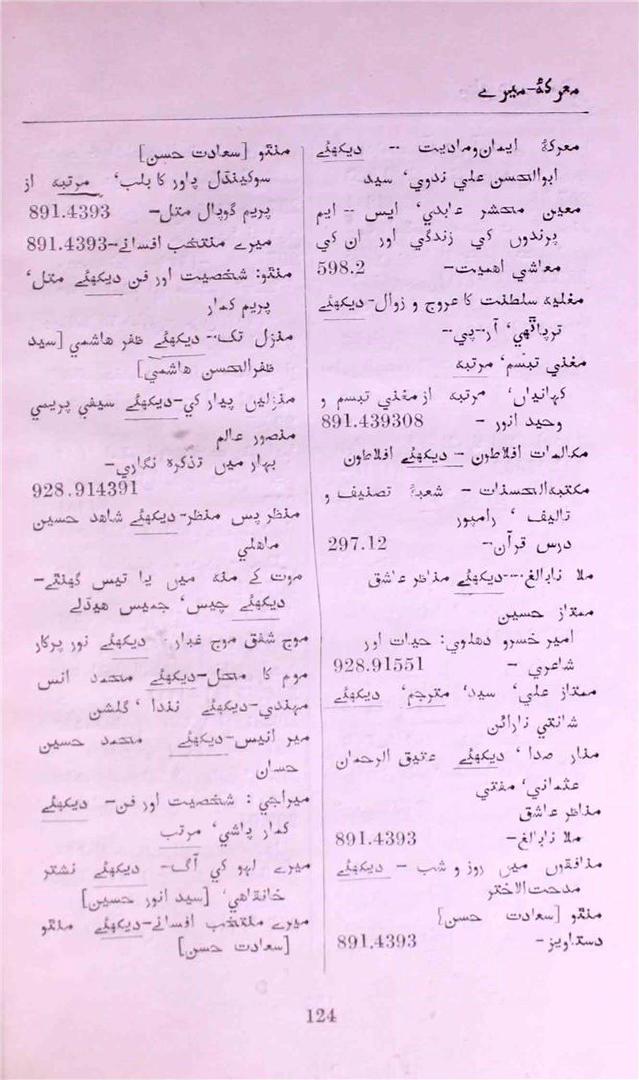 معرکۂ-میرے
معرکۂ ایمان و مادیت -- دیکھئے
ابوالحسن علی ندوی، سید
معین محشر عابدی، ایس - ایم
پرندوں کی زندگی اور ان کی
معاشی اهمیت- 598.2
مغلیہ سلطنت کا عروج و زوال-دیکھئے
ترپاٹھی، آر-پی--
مغنی تبسم، مرتبہ
کہانیاں، مرتبہ از مغنی تبسم و
وحید انور - 891.439308
مکالمات افلاطون - دیکھئے افلاطون
مکتبہ الحسنات - شعبۂ تصنیف و
تالیف ، رامپور
درس قرآن- 297.12
ملا نابالغ--دیکھئے مناظر عاشق
ممتاز حسین
امیر خسرو دهلوی: حیات اور
شاعری - 928.91551
ممتاز علی، سید، مترجم، دیکھئے
شانتی نارائن
منار صدا ، دیکھئے عتیق الرحمان
عثمانی، مفتی
مناظر عاشق
ملا نابالغ- 891.4393
منافقوں میں روز و شب - دیکھئے
مدحت الاختر
منٹو [سعادت حسن]
دستاویز- 891.4393
منٹو [سعادت حسن]
سوکینڈل پاور کا بلب، مرتبہ از
پریم گوپال متل- 891.4393
میرے منتخب افسانے-891.4393
منٹو: شخصیت اور فن دیکھئے متل،
پریم کمار
منزل تک-- دیکھئے ظفر هاشمی [سید
ظفرالحسن هاشمی]
منزلیں پیار کی-دیکھئے سیفی پریمی
منصور عالم
بہار میں تذکرہ نگاری-
928.914391
منظر پس منظر-دیکھئے شاهد حسین
ماهلی
موت کے منہ میں یا تیس گھنٹے-
دیکھئے چیس، جمیس هیڈلے
موج شفق موج غبار - دیکھئے نور پرکار
موم کا محل-دیکھئے محمد انس
مہندی-دیکھئے نندا ، گلشن
میر انیس-دیکھئے محمد حسین
حسان
میراجی : شخصیت اور فن- دیکھئے
کمار پاشی، مرتب
میرے لہو کی آگ- دیکھئے نشتر
خانقاهی، [سید انور حسین]
میرے منتخب افسانے-دیکھئے منٹو
[سعادت حسن]
124